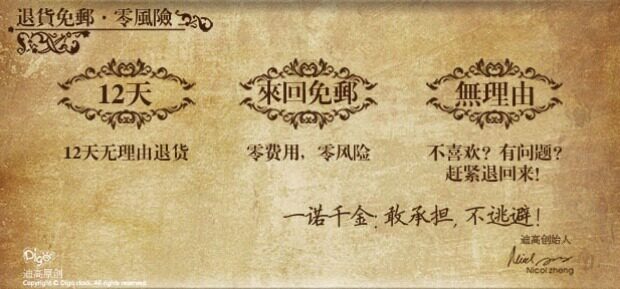 退貨免郵·零風險
12天
來回免郵
無理由
12天无理由退货
零费用，零风险
不喜欢？有问题？
赶紧退回来！
一诺千金：敢承担，不逃避！
迪高创始人
Nicol zheng
Digo
迪高原创
Copyright © Digo clock. All rights reserved.